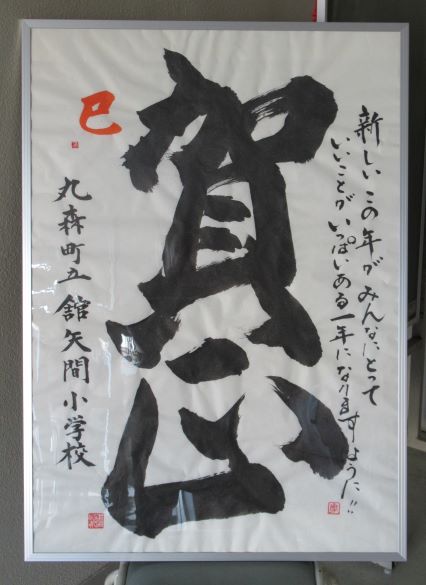 新しいこの年がみんなにとって
いいことがいっぱいある一年になりますように!!
賀正
巳
丸森町立舘矢間小学校